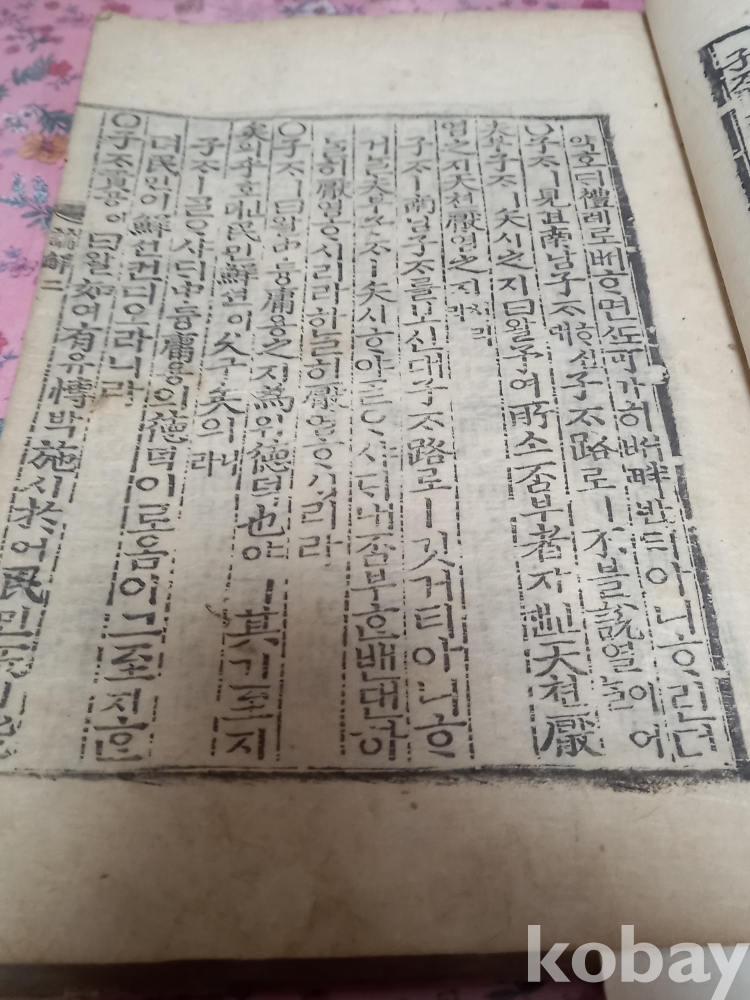 악호ᄃᆡ禮례로ᄡᅥᄒᆞ면ᄯᅩ可가히ᄡᅥ畔반티아니ᄒᆞ린뎌
○子ᄌᆞㅣ見현南남子ᄌᆞᄒᆞ신대子ᄌᆞ路로ㅣ不블說열이어ᄂᆞᆯ
夫부子ᄌᆞㅣ矢시之지曰왈予여所소否부者쟈ᅟ인댄天텬厭
염之지天텬厭염之지
子ᄌᆞㅣ南남子ᄌᆞ를보신대子ᄌᆞ路로ㅣ깃거티아닌ᄒᆞ
거ᄂᆞᆯ夫부子ᄌᆞㅣ矢시ᄒᆞ야ᄀᆞᆯᄋᆞ샤ᄃᆡ내否부ᄒᆞᆫ밴댄하
ᄂᆞᆯ히厭염ᄒᆞ시리라하ᄂᆞᆯ히厭염ᄒᆞ시리라
○子ᄌᆞㅣ曰왈中듕庸용之지爲위德덕也야ㅣ其기至지
矣의乎호ᅟ인뎌民민鮮션이久구矣의니라
子ᄌᆞㅣᄀᆞᆯᄋᆞ샤ᄃᆡ中듕庸용의德덕이로옴이그至지ᄒᆞᆫ
뎌民민이鮮션컨디오라니라
○子ᄌᆞ貢공이曰왈如여有유博박施시於어民민
解二
kobay